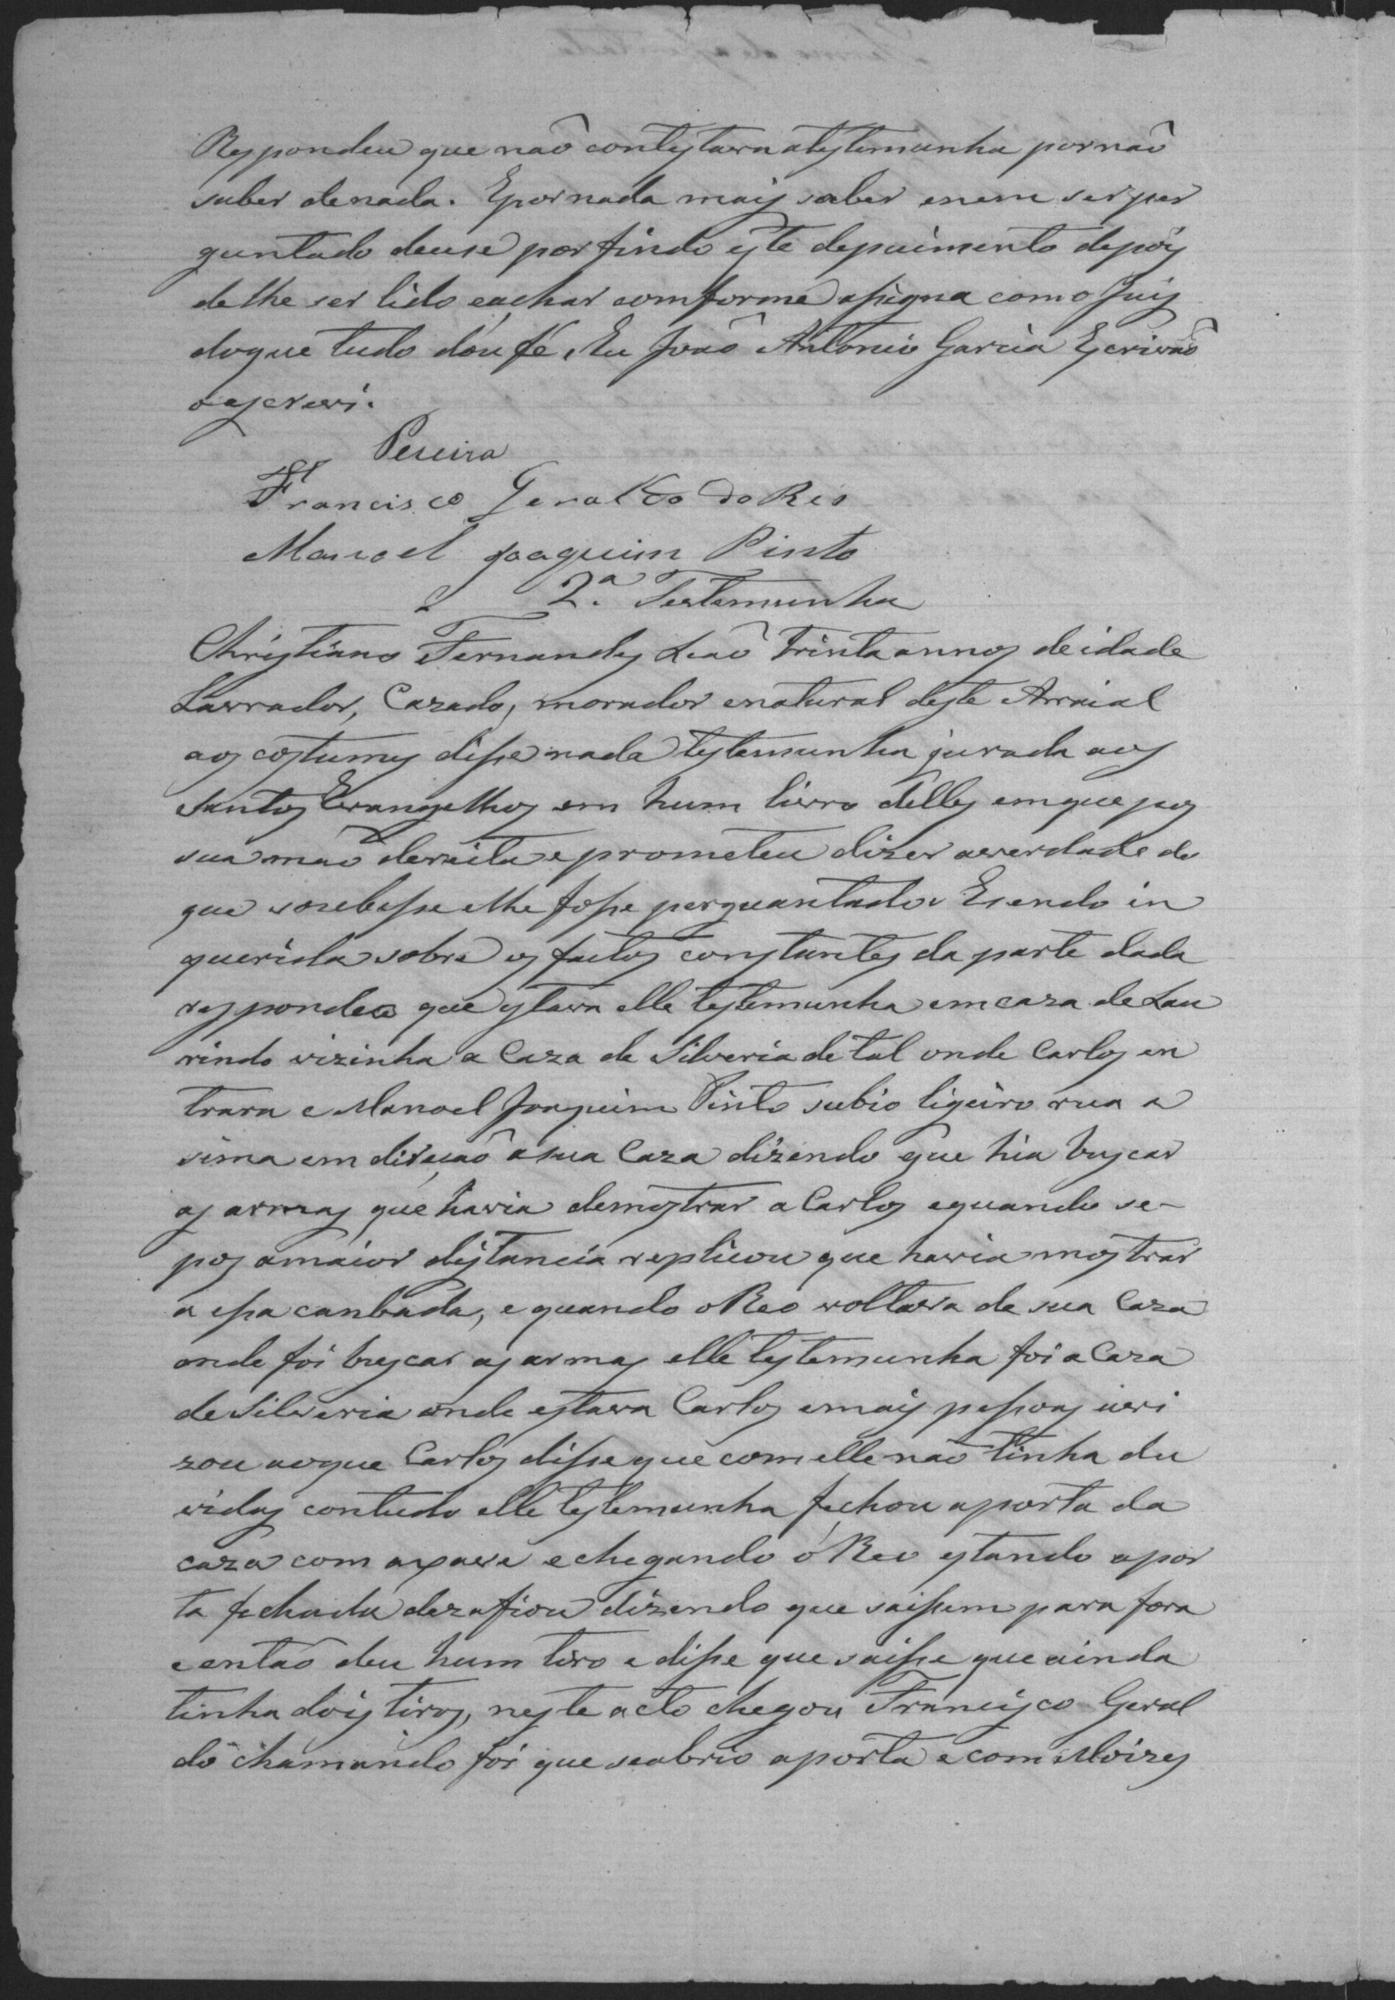 Respondeu que naõ contestava atestemunha por naõ
saber denada. Epornada mais saber enem serper
guntado deuse por findo este depoimento depois
delhe ser lido eachar comforme assigna com o Juis
doque tudo dou fé, Eu Joaõ Antonio Garcia Escrivaõ
oescrevi.
Pereira
Francisco Geraldo do Reis
Manoel Joaquim Pinto
2.ª Testemunha
Christiano Fernandes Leaõ Trinta annos deidade
Lavrador, Cazado, morador enatural deste Arraial
aos costumes disse nada testemunha jurada aos
Santos Evangelhos em hum livro delles emque pos
sua maõ dereita e prometeu dizer averdade do
que soubesse elhe fosse perguantado. Esendo in
querida sobre os factos constantes da parte dada
respondeo que estava elle testemunha emcaza de Lau
rindo vizinha a Caza de Silveria de tal onde Carlos en
trara e Manoel Joaquim Pinto subio ligeiro rua a
sima em direcaõ asua Caza dizendo que hia buscar
as armas que havia demostrar a Carlos equando se-
pos amaior distancia replicou que havia mostrar
a essa canbada, e quando oReo voltava de sua Caza
onde foi buscar as armas elle testemunha foi a Caza
de Silveria onde estava Carlos emais pessoas iavi
zou aoque Carlos disse que com elle naõ tinha du
vidas contudo elle testemunha fechou aporta da
caza com axave echegando o Reo estando apor
ta fechada dezafiou dizendo que saissem para fora
e entaõ deu hum tiro e disse que saisse que ainda
tinha dois tiros, neste acto chegou Francisco Geral
do chamando foi que seabrio aporta e com Moizes